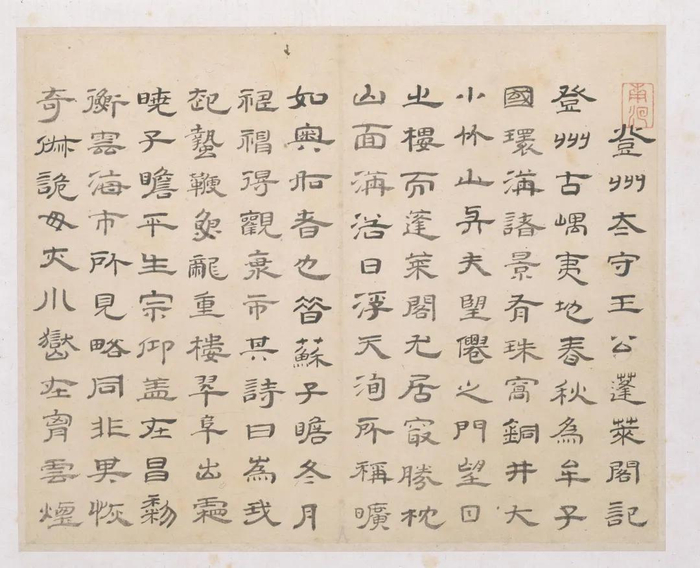 登州太守王公蓬萊閣記
登州古嵎夷地春秋為牟子
國環海諸景有珠窩銅井大
小竹山與夫望僊之門望日
之樓而蓬萊閣尤居最勝枕
山面海浴日浮天洵所稱曠
如奧如者也昔蘇子瞻冬月
禱得觀海市其詩曰為我
起蟄鞭魚龍重樓翠阜出霜
曉子瞻平生宗仰蓋在昌黎
衡雲海市所見略同非其恢
奇俶詭毋亦川嶽在胷雲煙